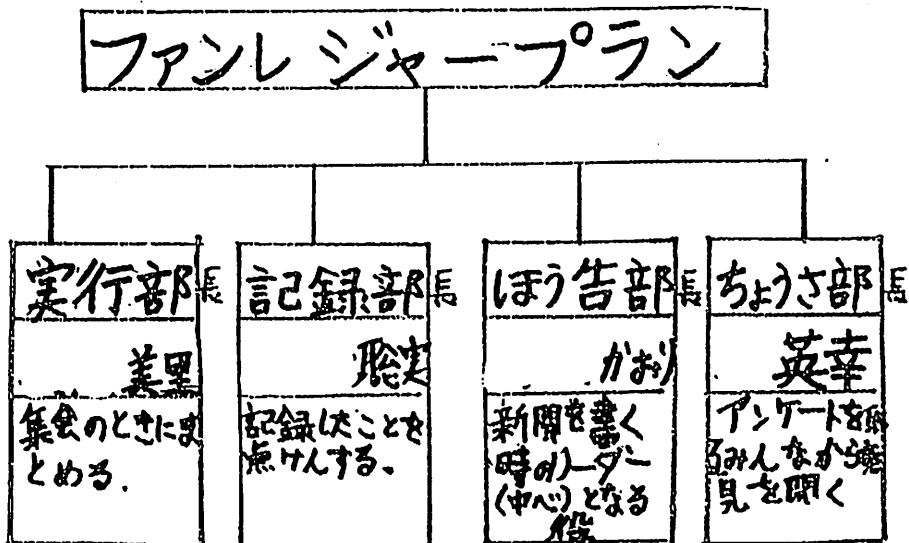 ファンレジャープラン
実行部長
美里
集会のときにま
とめる.
記録部長
聡実
記録したことを
点けんする。
ほう告部長
かおり
新聞を書く
時のリーダー
(中心)となる
役
ちょうさ部長
英幸
アンケートを
みんなから意
見を聞く